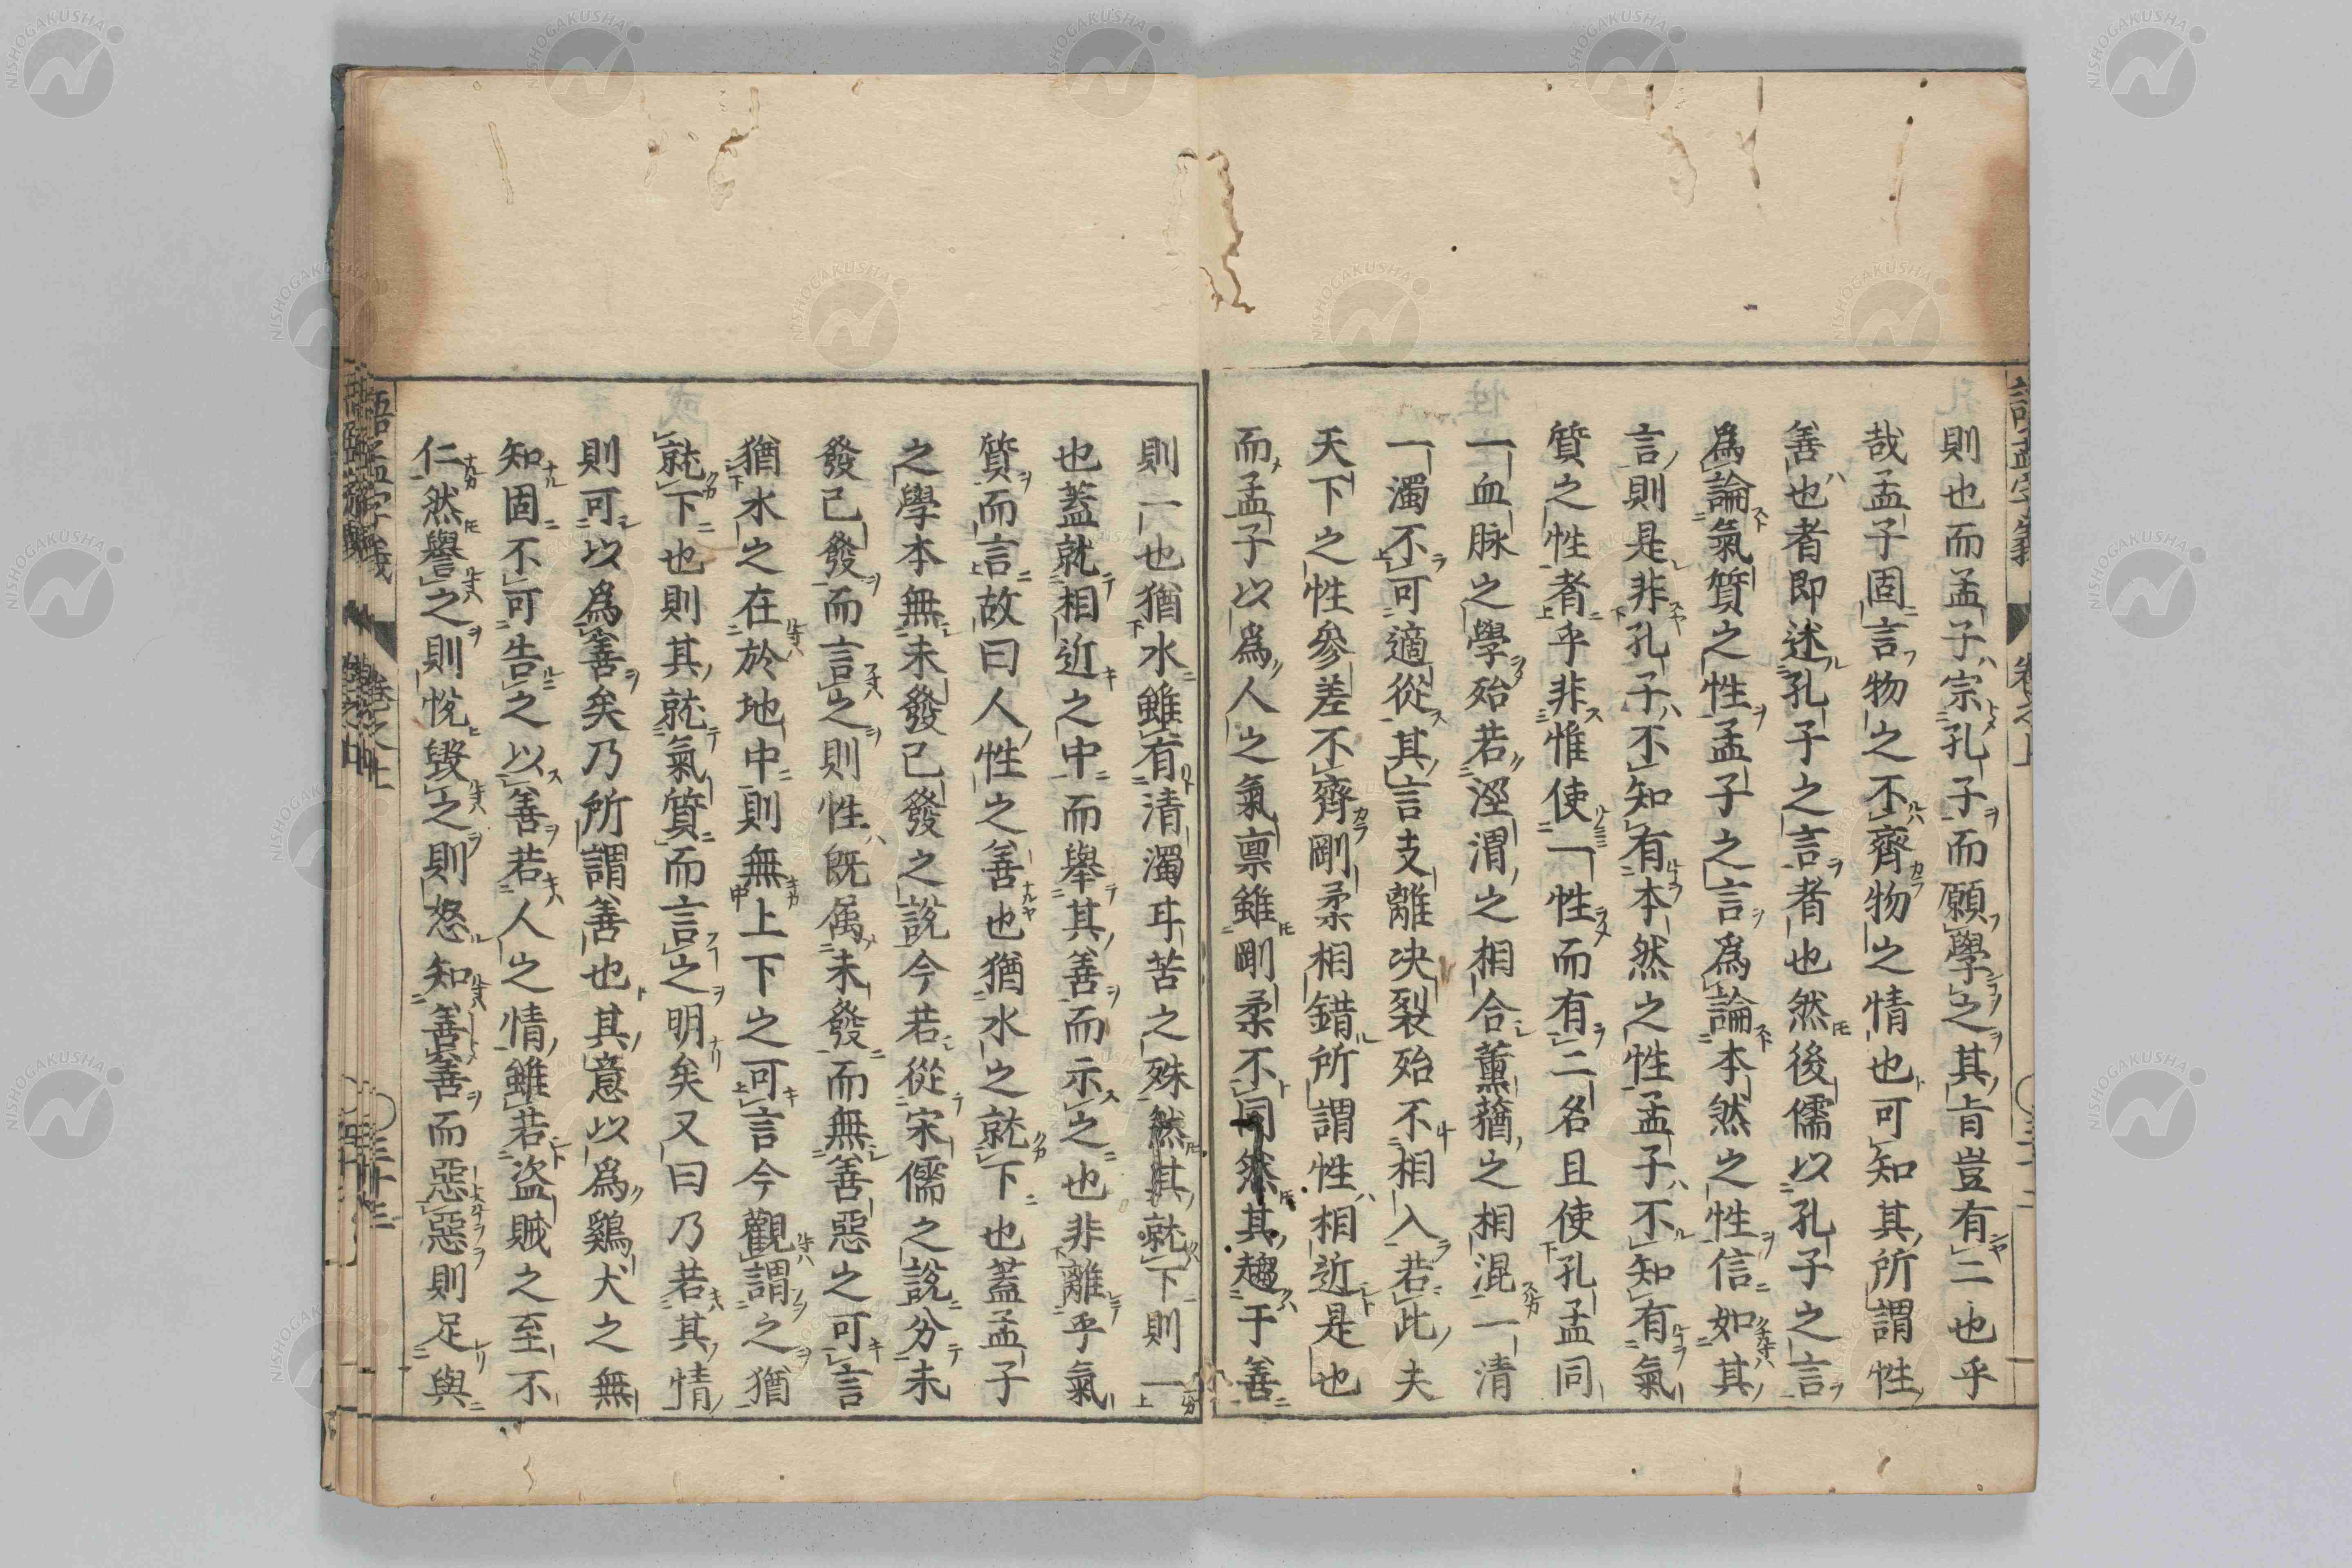 則也而孟子宗孔子而願學之其旨豈有二也乎
哉孟子固言物之不齊物之情也可知其所謂性
善也者即述孔子之言者也然後儒以孔子之言
爲論氣質之性孟子之言爲論本然之性信如其
言則是非孔子不知有本然之性孟子不知有氣
質之性者乎非惟使一性而有二名且使孔孟同
一血脉之學殆若涇渭之相合薰蕕之相混一清
一濁不可適從其言支離决裂殆不相入若此夫
天下之性參差不齊剛柔相錯所謂性相近是也
而孟子以爲人之氣禀雖剛柔不同然其趨于善
則一也猶水雖有清濁耳苦之殊然其就下則一
也蓋就相近之中而舉其善而示之也非離乎氣
質而言故曰人性之善也猶水之就下也蓋孟子
之學本無未發已發之說今若從宋儒之說分未
發已發而言之則性既属未發而無善惡之可言
猶水之在於地中則無上下之可言今觀謂之猶
就下也則其就氣質而言之明矣又曰乃若其情
則可以爲善矣乃所謂善也其意以爲鷄犬之無
知固不可告之以善若人之情雖若盗賊之至不
仁然譽之則悦毀之則怒知善善而惡惡則足與
語孟字義
卷之上
三十三